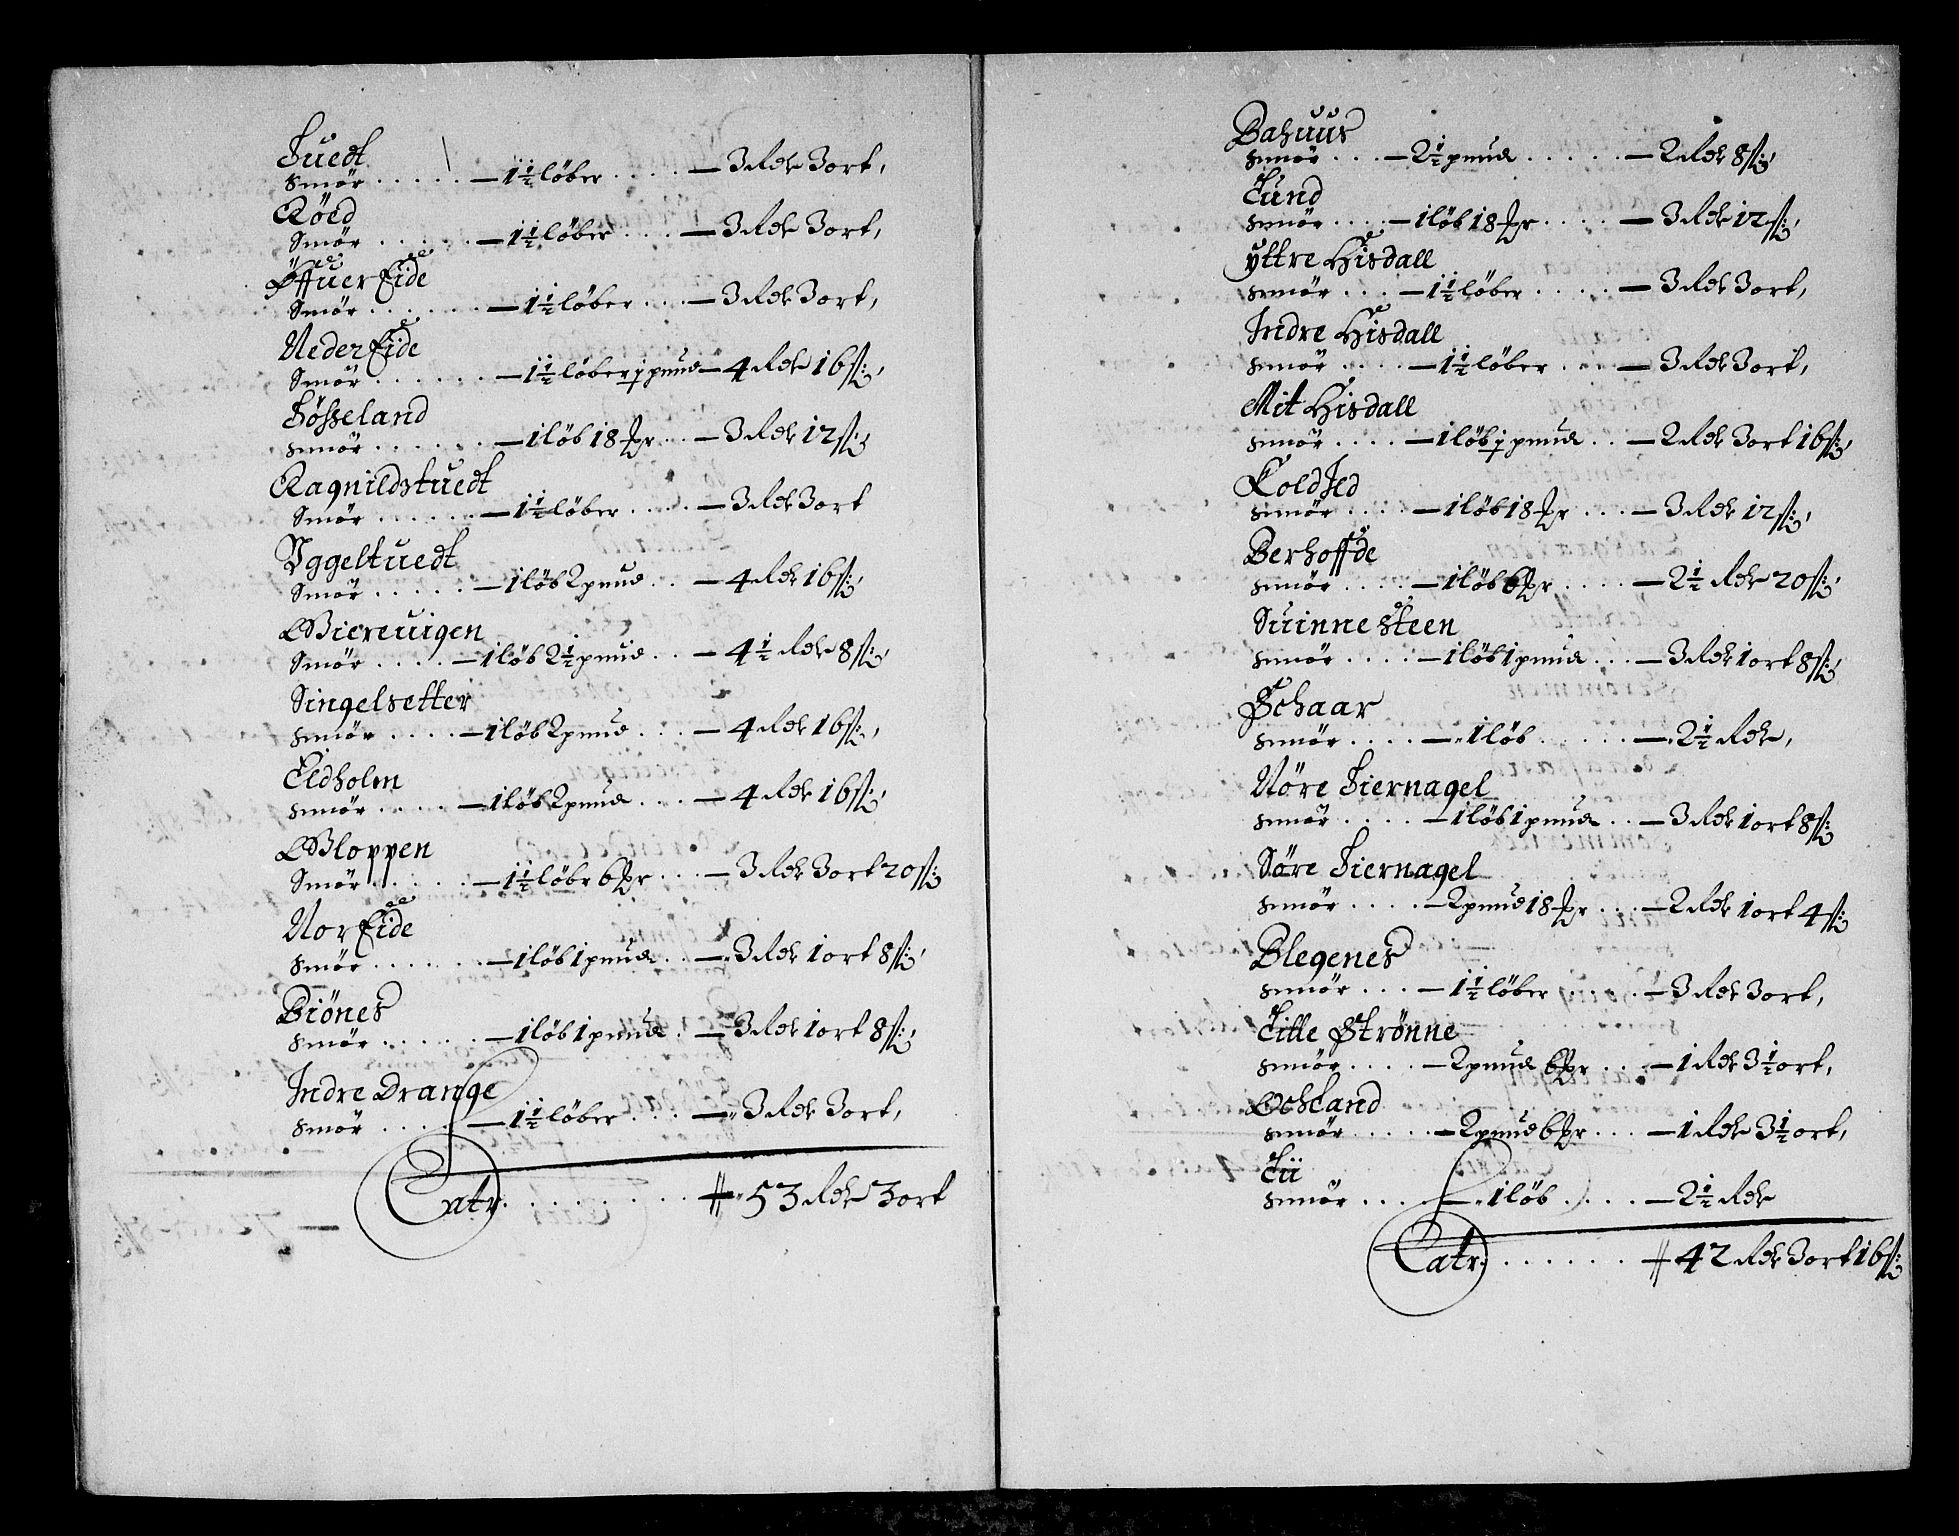 Tuedt
Smör . . . . . — 1½ löber . . . . — 3 Rdr 3 ort,
Röed
Smör . . . . . — 1½ löber . . . — 3 Rdr 3 ort,
Öffuer Eide
Smör . . . . . — 1½ löber . . . — 3 Rdr 3 ort,
Neder Eide
Smör . . . . . — 1½ löber j pund — 4 Rdr 16 ß,
Tösseland
Smör . . . . . — 1 löb 18 pr . . — 3 Rdr 12 ß,
Ragnildstuedt
Smör . . . . . — 1½ löber . . . . — 3 Rdr 3 ort
Uggeltuedt
Smör . . . . . — 1 löb 2 pund . . — 4 Rdr 16 ß,
Giereuigen
Smör . . . . — 1 löb 2½ pund . . — 4½ Rdr 8 ß,
Singelsetter
Smör . . . . — 1 löb 2 pund . . . — 4 Rdr 16 ß,
Eldholm
Smör . . . . — 1 löb 2 pund . . . — 4 Rdr 16 ß,
Gloppen
Smör . . . . . — 1½ löbr 6 pr . . . — 3 Rdr 3 ort 20 ß
Nor Eide
Smör . . . . . . — 1 löb 1 pund . . — 3 Rdr 1 ort 8 ß,
Biönes
Smör . . . . . . — 1 löb 1 pund . — 3 Rdr 1 ort 8 ß,
Indre Drange
Smör . . . . — 1½ löber . . . — 3 Rdr 3 ort,
Latr. . . . . . . . 53 Rdr 3 ort
Bahuus
Smör . . . — 2½ pund . . . . . — 2 Rdr 8 ß,
Lund
Smör . . . . — 1 löb 18 pr . . . . — 3 Rdr 12 ß,
yttre Hisdall
Smör . . . — 1½ löber . . . . — 3 Rdr 3 ort,
Indre Hisdall
Smör . . . . — 1½ löber . . . — 3 Rdr 3 ort,
Mit Hisdall
Smör . . . . — 1 löb j pund . . — 2 Rdr 3 ort 16 ß,
Smör . . . . — 1 löb 18 pr . . . — 3 Rdr 12 ß,
Berhoffde
Smör . . . . — 1 löb 6 pr . . . . — 2½ Rdr 20 ß,
Suinne Steen
Smör . . . . — 1 löb 1 pund . . . — 3 Rdr 1 ort 8 ß,
Schaar
Smör . . . . — 1 löb . . . . . . — 2½ Rdr,
Nöre Tiernagel
Smör . . . . — 1 löb 1 pund . . — 3 Rdr 1 ort 8 ß
Söre Tiernagel
Smör . . . . — 2 pund 18 pr . . . — 2 Rdr 1 ort 4 ß
Blegenes
Smör . . . — 1½ löber . . . . . — 3 Rdr 3 ort,
Lille Strönne
Smör . . . . — 2 pund 6 pr . . . — 1 Rdr 3½ ort,
Ochland
Smör . . . . . — 2 pund 6 pr . . . — 1 Rdr 3½ ort,
Lii
Smör . . . . — 1 löb . . . . — 2½ Rdr
Latr. . . . . . . 42 Rdr 3 ort 16 ß